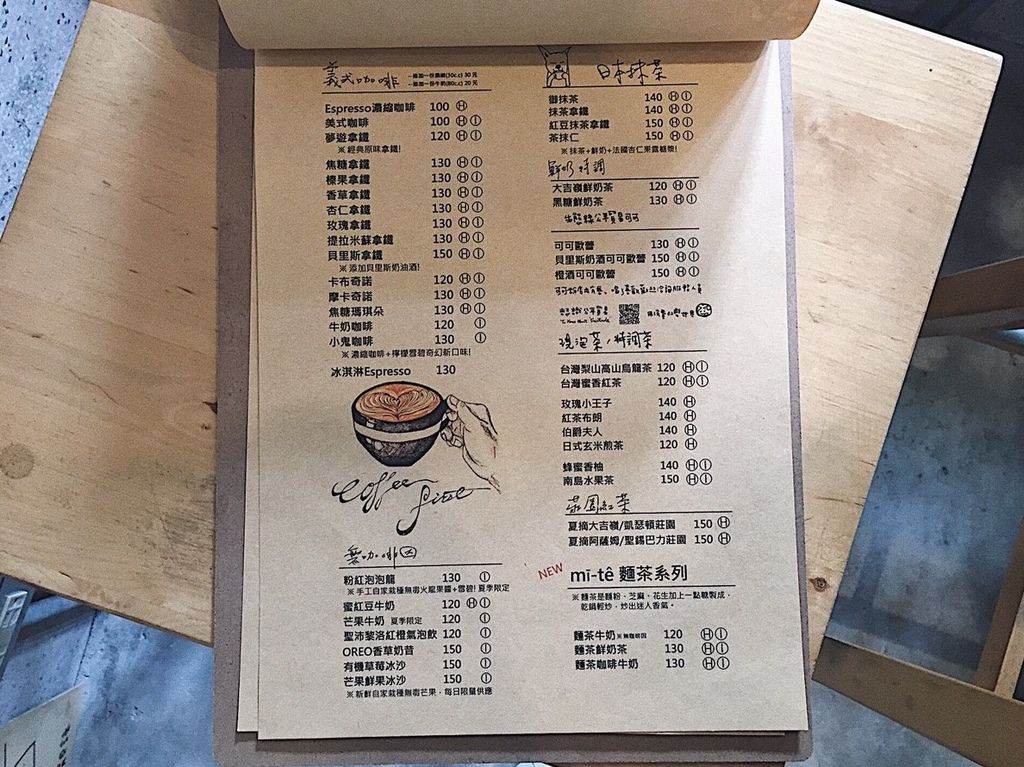 義式咖啡
Espresso濃縮咖啡 100 Ⓗ
美式咖啡 100 ⒽⒾ
夢遊拿鐵 120 ⒽⒾ
※ 經典原味拿鐵!
焦糖拿鐵 130 ⒽⒾ
榛果拿鐵 130 ⒽⒾ
香草拿鐵 130 ⒽⒾ
杏仁拿鐵 130 ⒽⒾ
玫瑰拿鐵 130 ⒽⒾ
提拉米蘇拿鐵 130 ⒽⒾ
貝里斯拿鐵 150 ⒽⒾ
※ 添加貝里斯奶油酒!
卡布奇諾 120 ⒽⒾ
摩卡奇諾 130 ⒽⒾ
焦糖瑪琪朵 130 ⒽⒾ
牛奶咖啡 120 Ⓘ
小鬼咖啡 130 Ⓘ
※ 濃縮咖啡+檸檬雪碧奇幻新口味!
冰淇淋Espresso 130
Coffee
無咖啡因
粉紅泡泡龍 130 Ⓘ
※ 手工自家栽種無毒火龍果醬+雪碧! 夏季限定
蜜紅豆牛奶 120 ⒽⒾ
芒果牛奶 夏季限定 120 Ⓘ
聖沛黎洛紅橙氣泡飲 120 Ⓘ
OREO香草奶昔 150 Ⓘ
有機草莓冰沙 150 Ⓘ
芒果鮮果冰沙 150 Ⓘ
※ 新鮮自家栽種無毒芒果，每日限量供應
日本抹茶
御抹茶 140 ⒽⒾ
抹茶拿鐵 140 ⒽⒾ
紅豆抹茶拿鐵 150 ⒽⒾ
茶抹仁 150 ⒽⒾ
※ 抹茶+鮮奶+法國杏仁果露糖漿!
鮮奶特調
大吉嶺鮮奶茶 120 ⒽⒾ
黑糖鮮奶茶 130 ⒽⒾ
生態綠公平貿易可可
可可歐蕾 130 ⒽⒾ
貝里斯奶酒可可歐蕾 150 ⒽⒾ
橙酒可可歐蕾 150 ⒽⒾ
現泡茶/特調茶
台灣梨山高山烏龍茶 120 ⒽⒾ
台灣蜜香紅茶 120 ⒽⒾ
玫瑰小王子 140 Ⓗ
紅茶布朗 140 Ⓗ
伯爵夫人 140 Ⓗ
日式玄米煎茶 120 Ⓗ
蜂蜜香柚 140 ⒽⒾ
南島水果茶 150 ⒽⒾ
莊園紅茶
夏摘大吉嶺/凱瑟頓莊園 150 Ⓗ
夏摘阿薩姆/聖錫巴力莊園 150 Ⓗ
NEW mī-tê 麵茶系列
※ 麵茶是麵粉、芝麻、花生加上一點糖製成，
乾鍋輕炒，炒出迷人香氣。
麵茶牛奶 ※無咖啡因 120 ⒽⒾ
麵茶鮮奶茶 130 ⒽⒾ
麵茶咖啡牛奶 130 ⒽⒾ